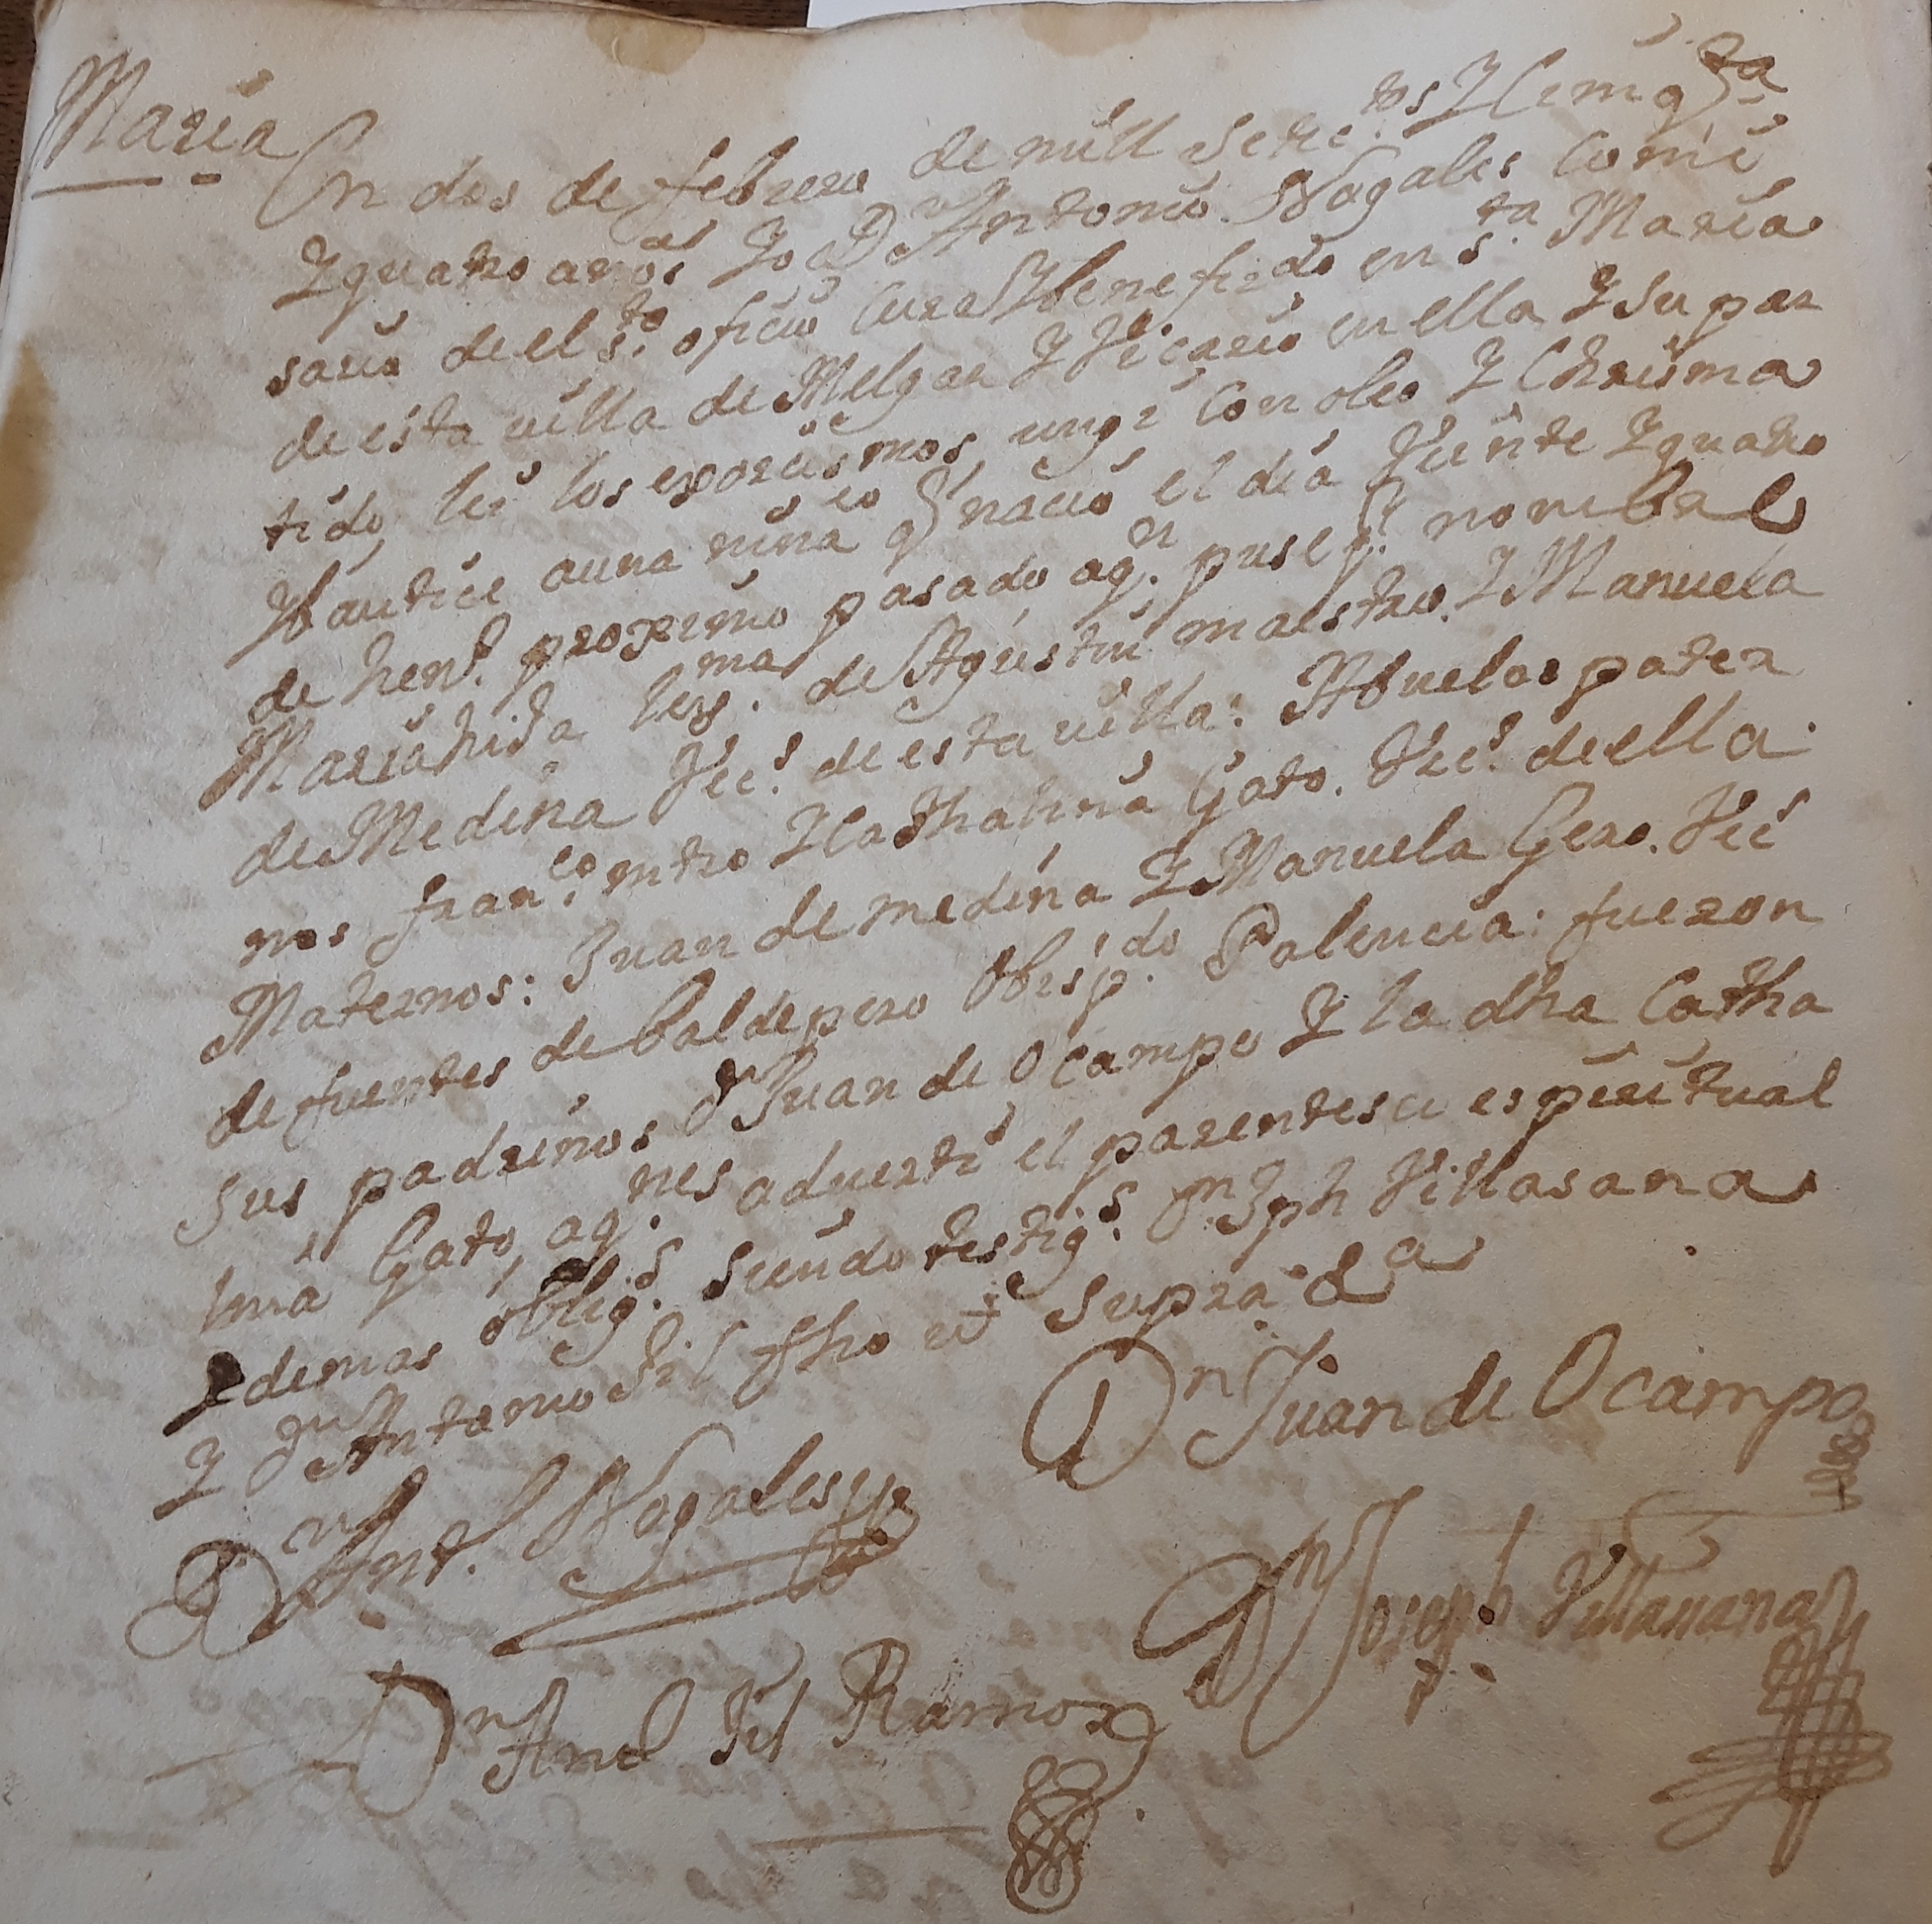 Maria
En dos de febrero de mill setectos. Y Cinqta
Y quatro años Yo Dn Antonio Nogales Comi
sario de el sto. oficio Cura Y benefizdo en sta. Maria
de esta villa de Melgar Y Vicario en ella Y su par
tido, lei los exorcismos, ungi Con oleo Y Chrisma
Y bautice a una niña q nacio el dia Veinte Y quatro
de hero. proximo pasado aqn. puse pr. nombre
Maria hija legma. de Agustin maestro, Y Manuela
de Medina Vecs. de esta villa: Abuelos pater
nos franco. mtro Y Cathalina Gato. Vecs. de ella.
Maternos: Juan de medina Y Manuela Gero. Vec
de fuentes de baldepero Obispdo. Palencia: fueron
sus padrinos Dn Juan de Ocampo Y la dha Catha
lina Gato, aqnes. adverti el parentesco espiritual
Y demas obligs. siendo testigs. Dn. Jph Villasana
Y Dn Antonio Gil fho ut supra
Dn Juan de Ocampo
Dn Ant. Nogales
Dn Joseph Villasana
Dn Ant Gil Ramos